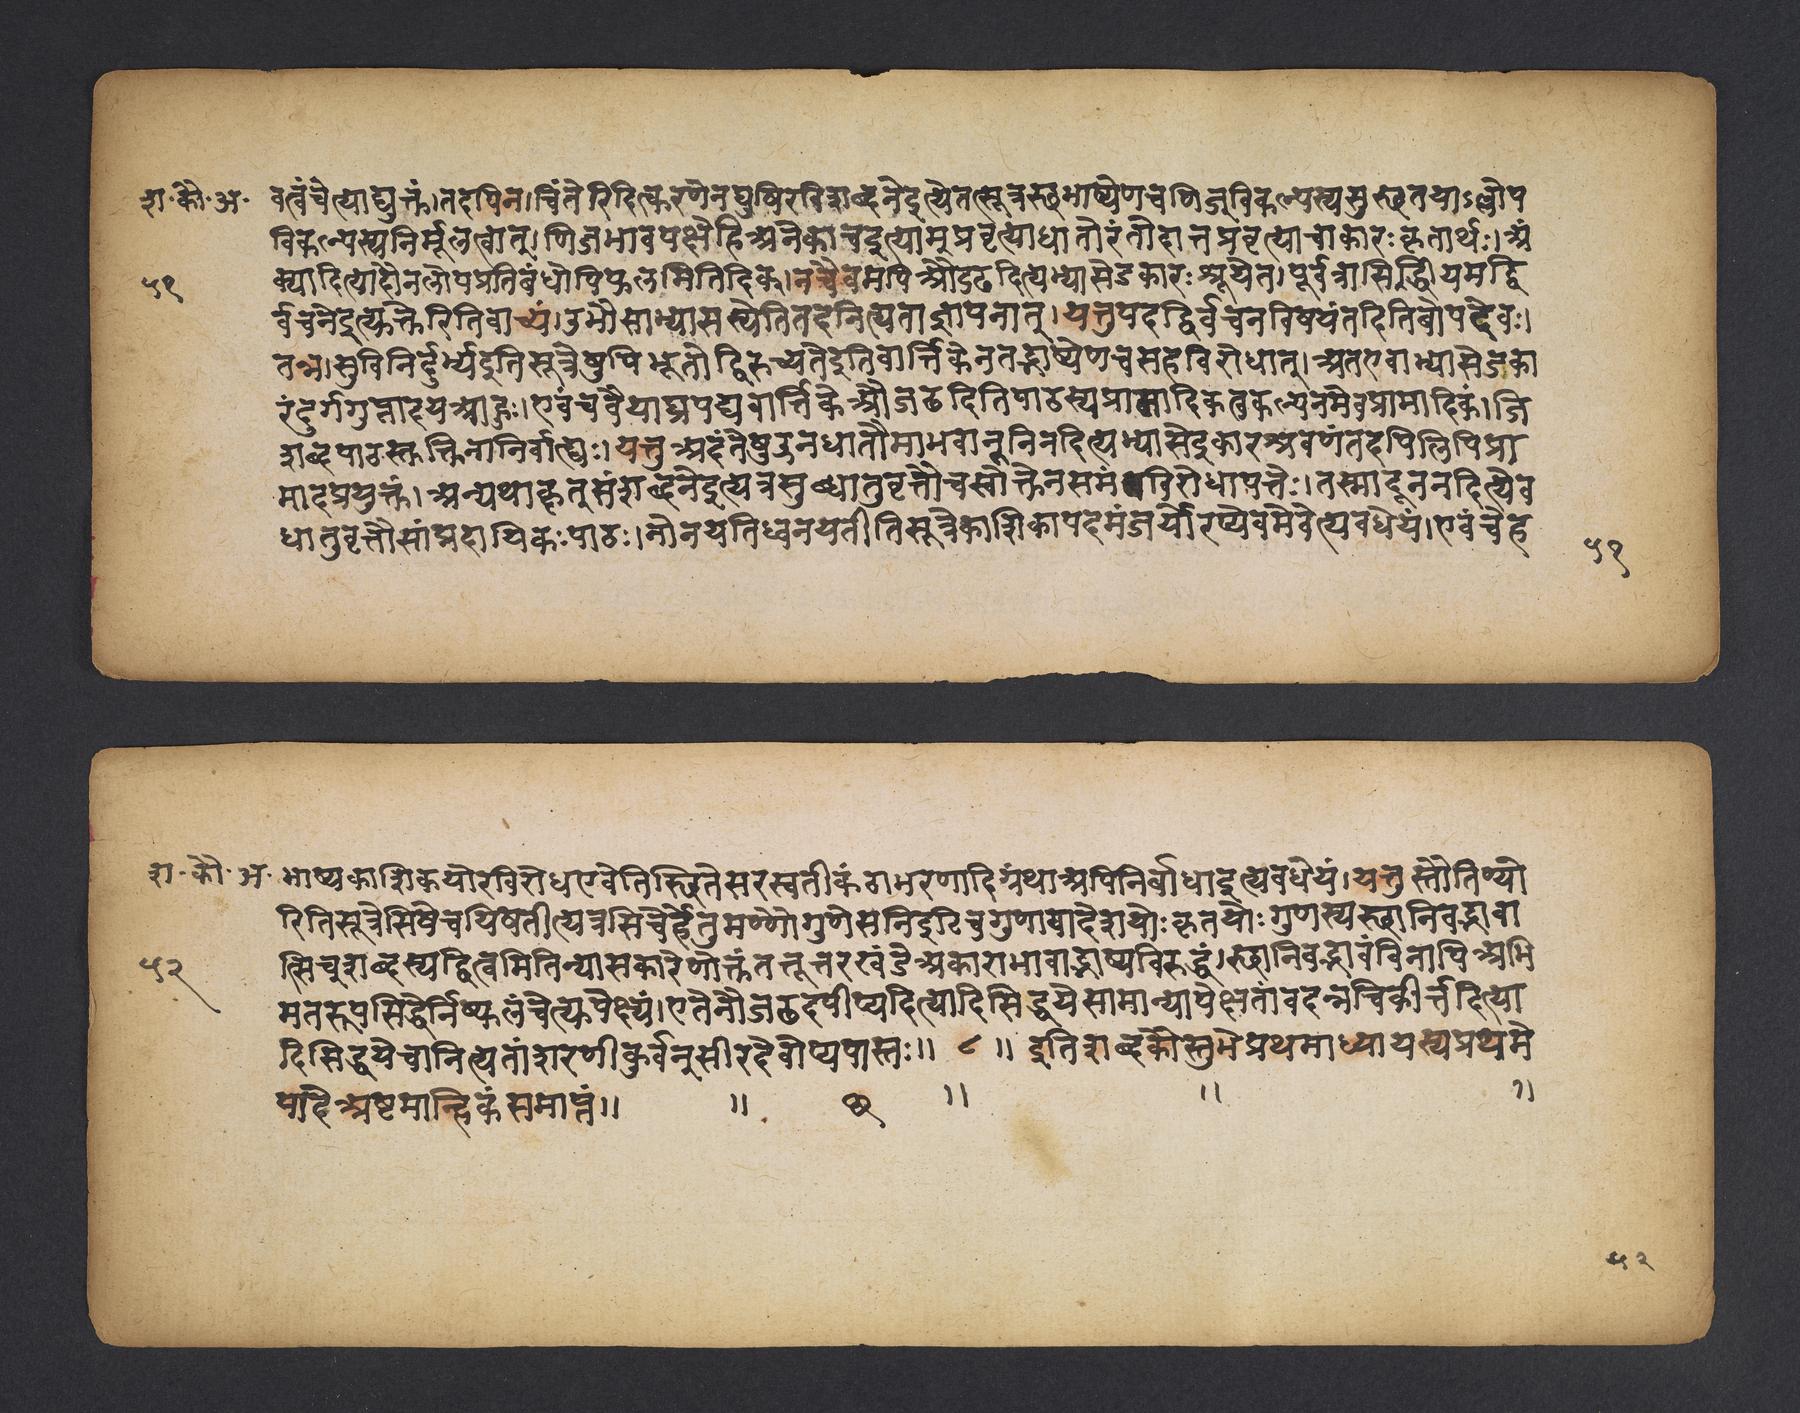 श. कौ. अ. वत्वंचेत्याद्युक्तं।तदपिन।चिंतेरिदित्करणेनघुषिरविशब्दनेइत्येतत्सूत्रस्थभाष्येणचणिज्विकल्पस्यसुस्थतयाऽल्लोप
विकल्पस्यनिर्मूलत्वात्।णिजभावपक्षेहिअनेकाचइत्यामप्रवृत्त्याधातोरंतोदात्तप्रवृत्त्याचाकारःकृतार्थः।अं
५१ क्यादित्यादौनलोपप्रतिबंधोपिफलमितिदिक्।नचैवमपिऔडढदित्यभ्यासेडकारःश्रूयेत।पूर्वत्रासिद्धीयमद्वि
र्वचनेइत्युक्तेरितिवाच्यं।उभौसाभ्यासस्येतितदनित्यताज्ञापनात्।यत्तुपदद्विर्वचनविषयंतदितिबोपदेवः।
तन्न।सुविनिर्दुर्भ्यइतिसूत्रेषुपिभूतोद्विरुच्यतेइतिवार्त्तिकेनतद्भाष्येणचसहविरोधात्।अतएवाभ्यासेजका
रंदुर्गगुप्तादयआहुः।एवंचवैयाघ्रपद्यवार्त्तिकेऔजढदितिपाठस्यप्रामादिकत्वकल्पनमेवप्रामादिकं।जि
शब्दपाठस्तक्तिनानिर्वाह्यः।यत्तुअदंतेषुऊनधातौमाभवानूनिनदित्यभ्यासेइकारश्रवणंतदपिलिपिप्रा
मादप्रयुक्तं।अन्यथाकृतसंशब्दनेइत्यत्रसुब्धातुवृत्तौचस्वोक्तेनसमंविरोधापत्तेः।तस्मादूननदित्येव
धातुवृत्तौसांप्रदायिकःपाठः।नोनयतिध्वनयतीतिसूत्रेकाशिकापदमंजर्योरप्येवमेवेत्यवधेयं।एवंचेह
५१
श. कौ. अ. भाष्यकाशिकयोरविरोधाएवेतिस्थितेसरस्वतीकंठाभरणादिग्रंथाअपिनिर्बाधाइत्यवधेयं।यत्तुस्तौतिण्यो
रितिसूत्रेसिषेचयिषतीत्यत्रसिचेर्हेतुमण्णौगुणेसनिइटिचगुणायादेशयोःकृतयोःगुणस्यस्थानिवद्भावा
५२ त्सिच्शब्दस्यद्वित्वमितिन्यासकारेणोक्तंतत्तूत्तरखंडेअकाराभावाद्भाष्यविरुद्धं।स्थानिवद्भावंविनापिअभि
मतरूपसिद्धेर्निष्फलंचेत्युपेक्ष्यं।एतेनौजढदपीप्यदित्यादिसिद्धयेसामान्यापेक्षतांवदन्नचिकीर्त्तदित्या
दिसिद्धयेचानित्यतांशरणीकुर्वन्सीरदेवोप्यपास्तः॥ ८ ॥ इतिशब्दकौस्तुभेप्रथमाध्यायस्यप्रथमे
पादेअष्टमान्हिकंसमाप्तं॥ ॥ ॥ ॥ ॥
५२